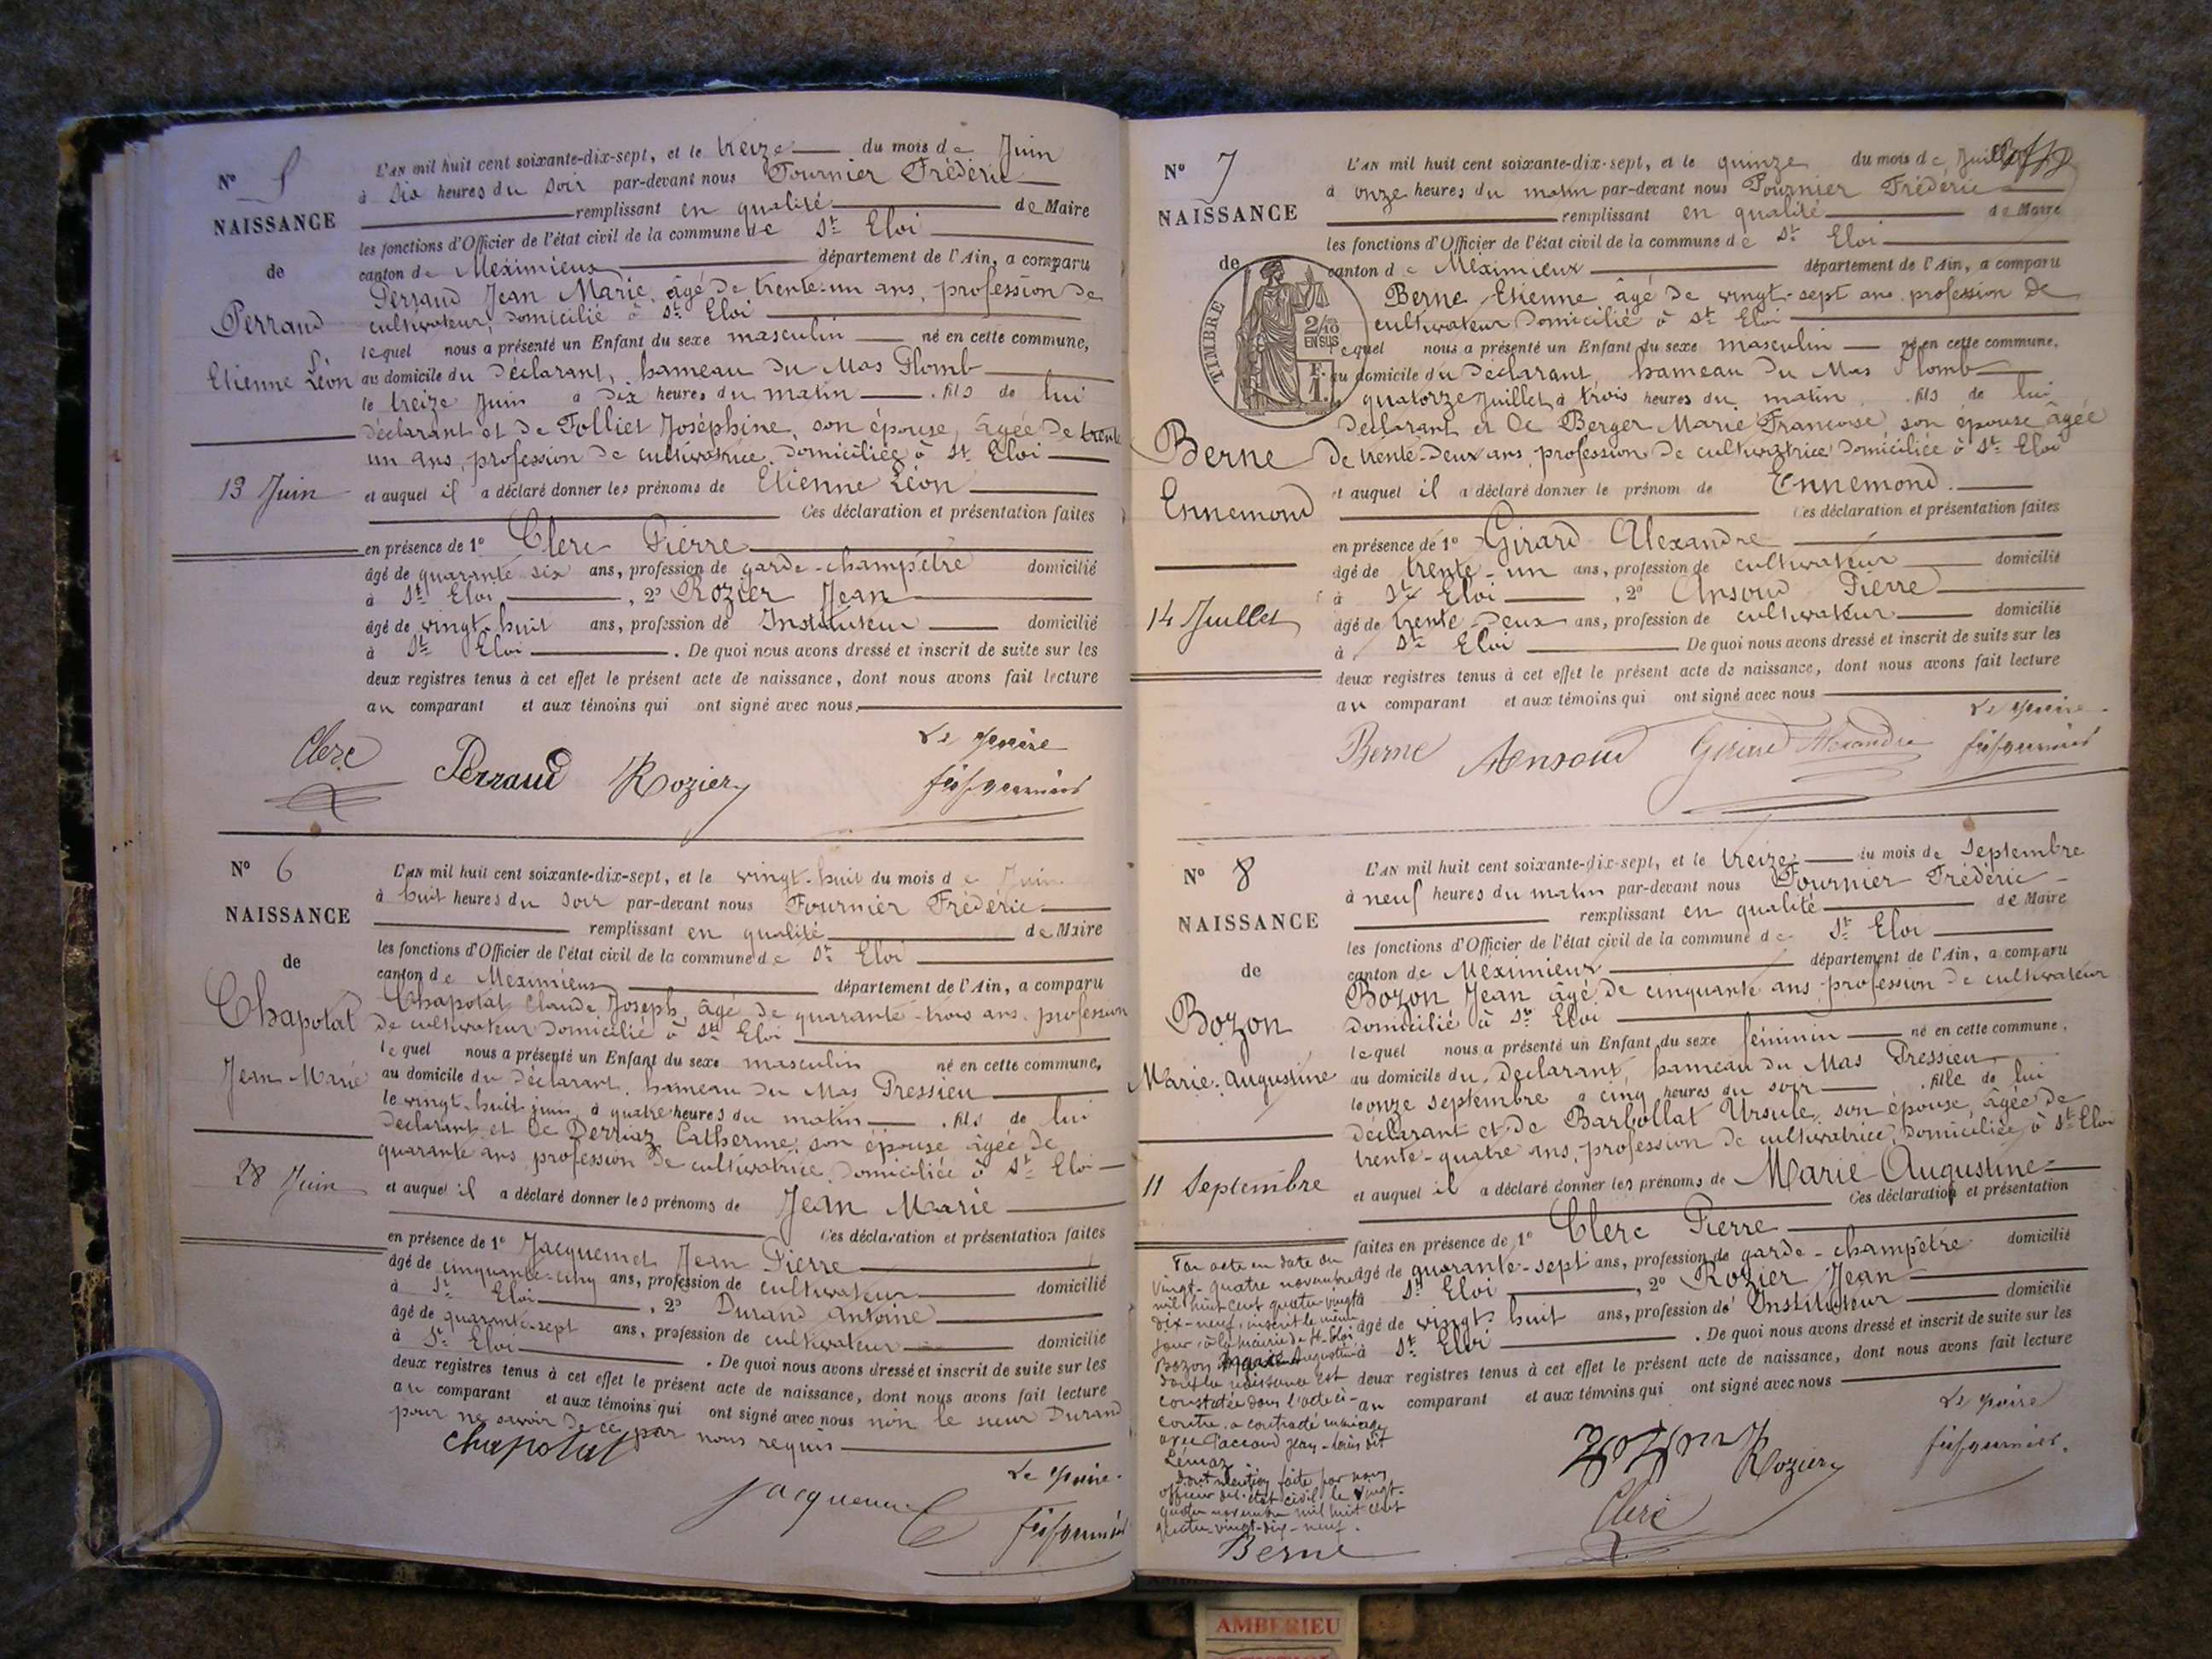 N° 5
NAISSANCE
de
Perraud
Etienne Léon
13 Juin
L'AN mil huit cent soixante-dix-sept, et le treize du mois de Juin
à six heures du soir par-devant nous Fournier Frédéric
remplissant en qualité de Maire
les fonctions d'Officier de l'état civil de la commune de St Eloi
canton de Meximieux département de l'Ain, a comparu
Perraud Jean Marie, âgé de trente-un ans, profession de
cultivateur, domicilié à St Eloi
lequel nous a présenté un Enfant du sexe masculin né en cette commune,
au domicile du déclarant, hameau du Mas Plomb
le treize Juin à dix heures du matin . fils de lui
déclarant et de Folliet Joséphine, son épouse, âgée de trente
un ans, profession de cultivatrice, domiciliée à St Eloi
et auquel il a déclaré donner les prénoms de Etienne Léon
Ces déclaration et présentation faites
en présence de 1° Clerc Pierre
âgé de quarante six ans, profession de garde-champêtre domicilié
à St Eloi , 2° Rozier Jean
âgé de vingt-huit ans, profession de Instituteur domicilié
à St Eloi . De quoi nous avons dressé et inscrit de suite sur les
deux registres tenus à cet effet le présent acte de naissance, dont nous avons fait lecture
au comparant et aux témoins qui ont signé avec nous.
Le Maire
Clerc Perraud Rozier
N° 6
NAISSANCE
de
Chapolat
Jean Marie
28 Juin
L'AN mil huit cent soixante-dix-sept, et le vingt-huit du mois de Juin
à huit heures du soir par-devant nous Fournier Frédéric
remplissant en qualité de Maire
les fonctions d'Officier de l'état civil de la commune de St Eloi
canton de Meximieux département de l'Ain, a comparu
Chapolat Claude Joseph, âgé de quarante-trois ans, profession
de cultivateur domicilié à St Eloi
lequel nous a présenté un Enfant du sexe masculin né en cette commune,
au domicile du déclarant, hameau du Mas Pressieu
le vingt-huit juin à quatre heures du matin . fils de lui
déclarant et de Derriaz Catherine, son épouse âgée de
quarante ans, profession de cultivatrice, domiciliée à St Eloi
et auquel il a déclaré donner les prénoms de Jean Marie
Ces déclaration et présentation faites
en présence de 1° Jacquemet Jean Pierre
âgé de cinquante-cinq ans, profession de cultivateur domicilié
à St Eloi , 2° Durand Antoine
âgé de quarante-sept ans, profession de cultivateur domicilié
à St Eloi . De quoi nous avons dressé et inscrit de suite sur les
deux registres tenus à cet effet le présent acte de naissance, dont nous avons fait lecture
au comparant et aux témoins qui ont signé avec nous non le sieur Durand
pour ne savoir de ce par nous requis
chapolat
Le Maire
N° 7
NAISSANCE
de
TIMBRE
2/10
EN SUS
Berne
Ennemond
14 Juillet
L'AN mil huit cent soixante-dix-sept, et le quinze du mois de Juillet
à onze heures du matin par-devant nous Fournier Frédéric
remplissant en qualité de Maire
les fonctions d'Officier de l'état civil de la commune de St Eloi
canton de Meximieux département de l'Ain, a comparu
Berne Etienne âgé de vingt-sept ans profession de
cultivateur domicilié à St Eloi
lequel nous a présenté un Enfant du sexe masculin né en cette commune,
au domicile du déclarant, hameau du Mas Plomb
quatorze Juillet à trois heures du matin . fils de lui
déclarant et de Berger Marie Françoise son épouse âgée
de trente-deux ans, profession de cultivatrice domiciliée à St Eloi
et auquel il a déclaré donner le prénom de Ennemond.
Ces déclaration et présentation faites
en présence de 1° Girard Alexandre
âgé de trente-un ans, profession de cultivateur domicilié
à St Eloi , 2° Ansoud Pierre
âgé de trente-deux ans, profession de cultivateur domicilié
à St Eloi De quoi nous avons dressé et inscrit de suite sur les
deux registres tenus à cet effet le présent acte de naissance, dont nous avons fait lecture
au comparant et aux témoins qui ont signé avec nous
Le Maire
Berne Ansoud Girard Alexandre
N° 8
NAISSANCE
de
Bozon
Marie-Augustine
11 Septembre
L'AN mil huit cent soixante-dix-sept, et le treize du mois de Septembre
à neuf heures du matin par-devant nous Fournier Frédéric
remplissant en qualité de Maire
les fonctions d'Officier de l'état civil de la commune de St Eloi
canton de Meximieux département de l'Ain, a comparu
Bozon Jean âgé de cinquante ans profession de cultivateur
domicilié à St Eloi
lequel nous a présenté un Enfant du sexe féminin né en cette commune,
au domicile du déclarant, hameau du Mas Pressieu
le onze septembre à cinq heures du soir . fille de lui
déclarant et de Barbollat Ursule, son épouse, âgée de
trente-quatre ans, profession de cultivatrice, domiciliée à St Eloi
et auquel il a déclaré donner les prénoms de Marie Augustine
Ces déclaration et présentation
faites en présence de 1° Clerc Pierre
âgé de quarante-sept ans, profession de garde-champêtre domicilié
à St Eloi , 2° Rozier Jean
âgé de vingt-huit ans, profession de Instituteur domicilié
à St Eloi . De quoi nous avons dressé et inscrit de suite sur les
deux registres tenus à cet effet le présent acte de naissance, dont nous avons fait lecture
au comparant et aux témoins qui ont signé avec nous
Le Maire
Bozon Rozier
Clerc
Par acte en date du
vingt-quatre novembre
mil huit cent quatre-vingt
dix-neuf, inscrit le même
jour à la mairie de St-Eloi
Bozon Marie Augustine
dont la naissance est
constatée dans l'acte ci-
contre, a contracté mariage
avec Paccoud Jean-Louis dit
Lémoz
dont mention faite par nous
officier de l'état civil le vingt-
quatre novembre mil huit cent
quatre-vingt-dix-neuf.
Berne
AMBERIEU